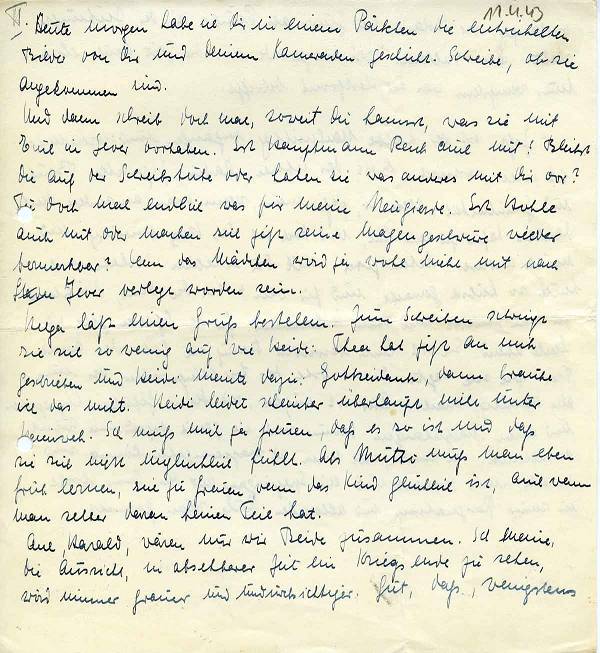 II. 11.4.43
Heute morgen habe ich Dir in einem Päckchen die entwickelten
Bilder von Dir und Deinen Kameraden geschickt. Schreibe, ob sie
angekommen sind.
Und dann schreib doch mal, soweit Du kannst, was sie mit
Euch in Jever vorhaben. Ist Hauptmann auch mit? Bleibst
Du auf der Schreibstube oder haben sie was anderes mit Dir vor?
Tu doch mal endlich was für meine Neugierde. Ist Kohle
auch mit oder machen sich jetzt seine Magengeschwüre wieder
bemerkbar? Denn das Mädchen wird ja wohl nicht mit nach
Jever verlegt worden sein.
Helga läßt einen Gruß bestellen. Zum Schreiben schwingt
sie sich so wenig auf wie Heidi. Thea hat jetzt an mich
geschrieben und Heidi meinte dazu: Gottseidank, dann brauche
ich das nicht. Heidi leidet scheinbar überhaupt nicht unter
Heimweh. Ich muß mich ja freuen, daß es so ist und daß
sie sich nicht unglücklich fühlt. Als Mutti muß man eben
früh lernen, sich zu freuen, wenn das Kind glücklich ist, auch wenn
man selber daran keinen Teil hat.
Ach, Harald, wären nur wir Beide zusammen. Ich meine,
die Aussicht, in absehbarer Zeit ein Kriegsende zu sehen,
wird immer grauer und undurchsichtiger. Gut, daß, wenigstens